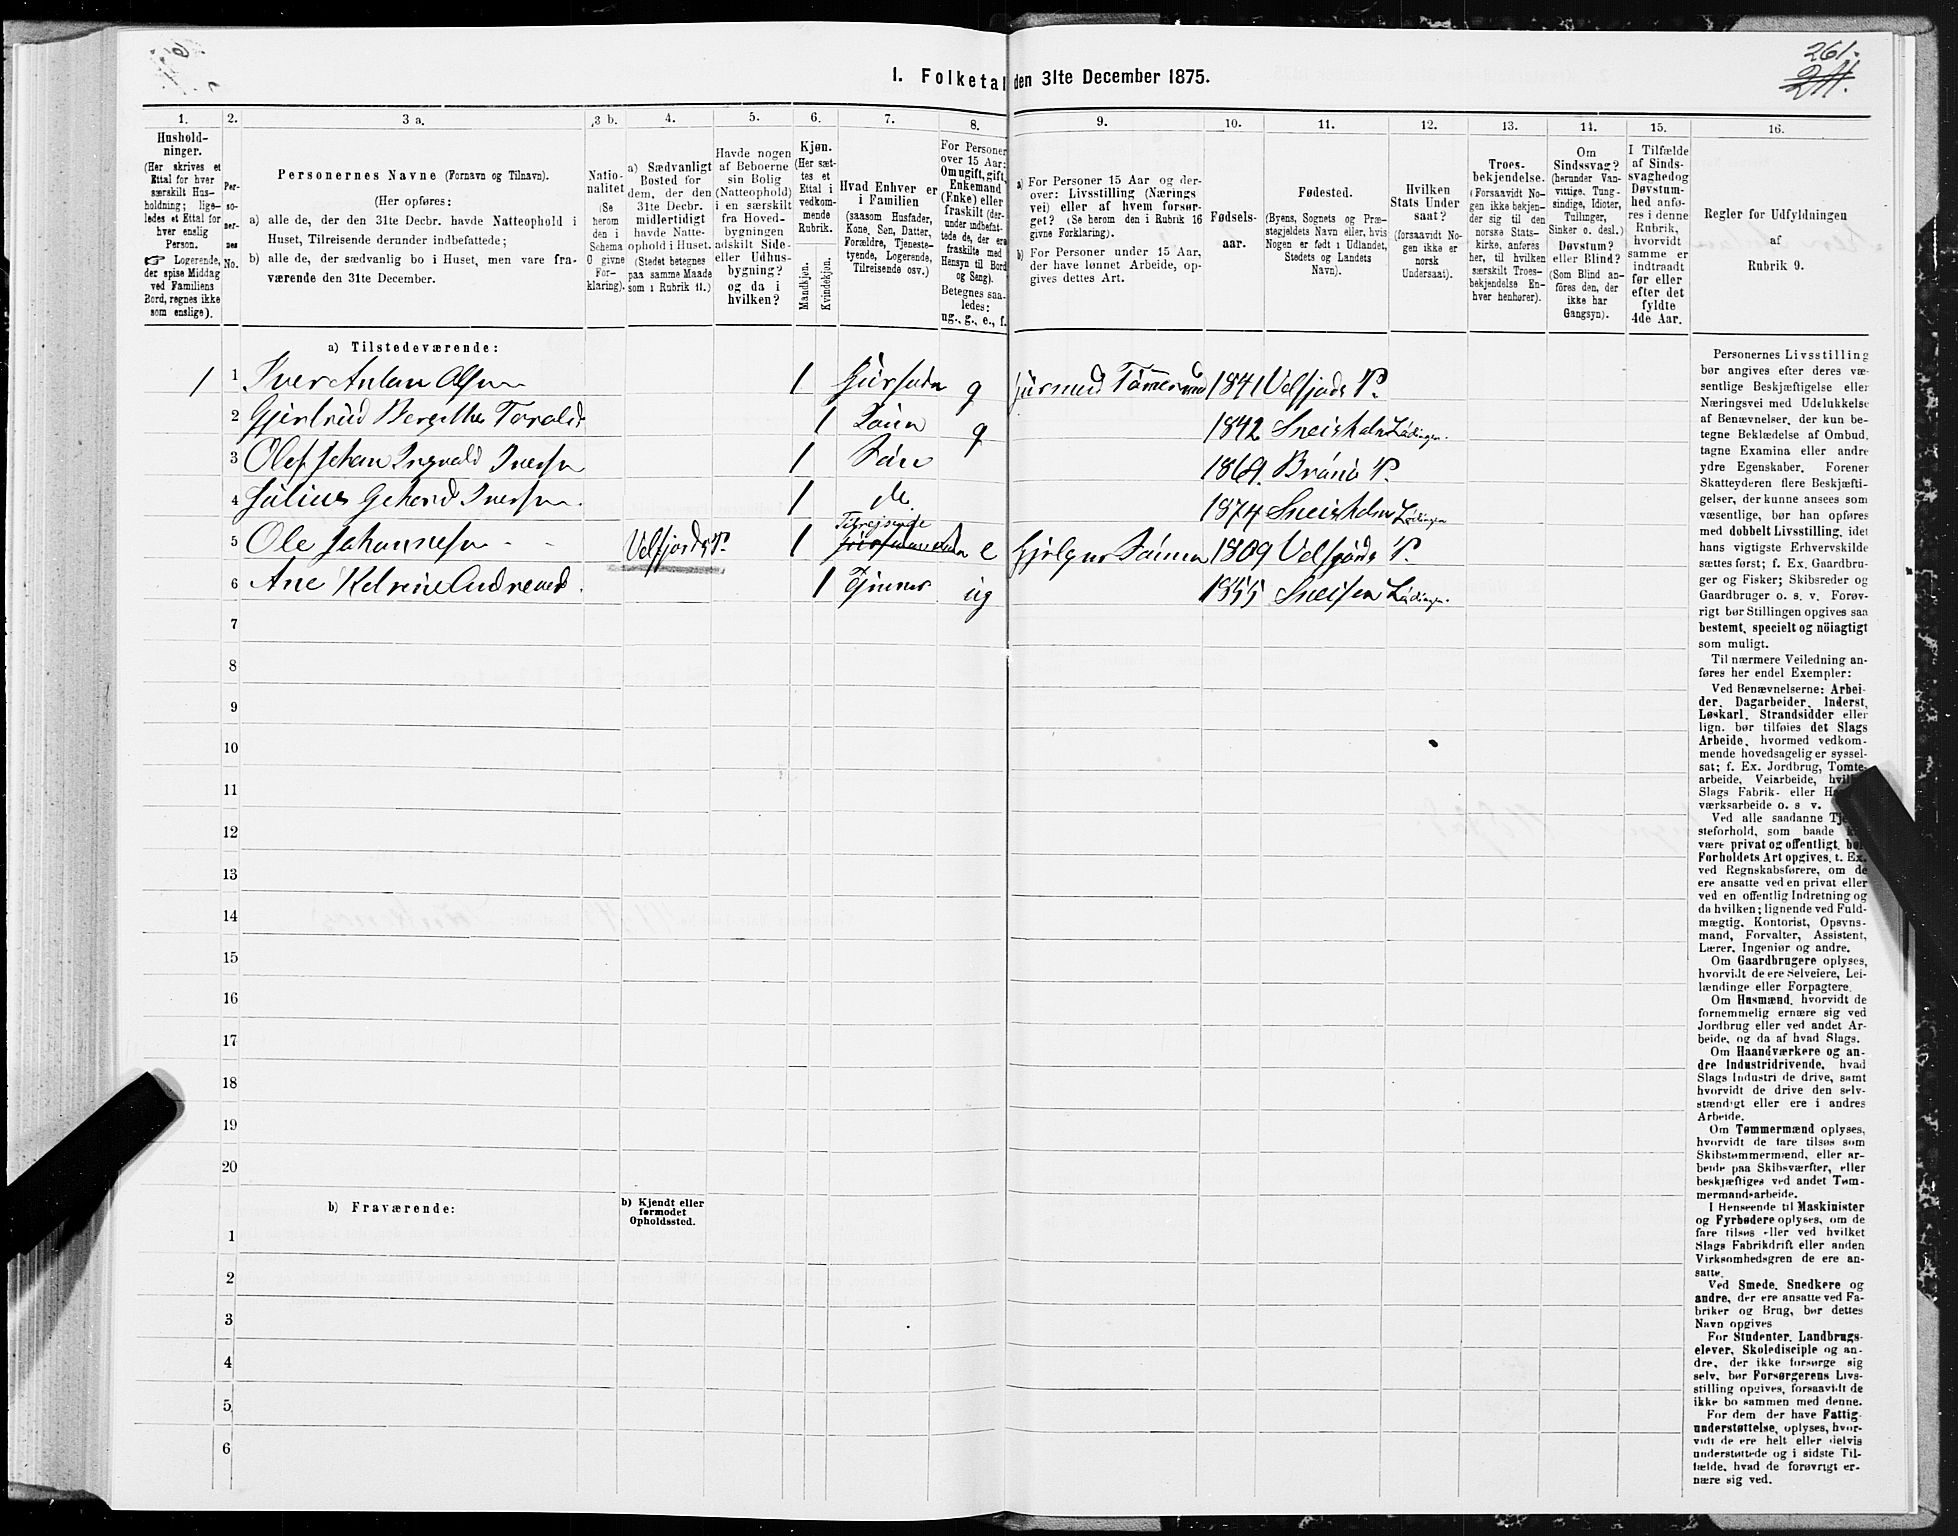 261.
211.
1. Folketal den 31te December 1875.
1. 2. 3 a. 3 b. 4. 5. 6. 7. 8. 9. 10. 11. 12. 13. 14. 15. 16.
Hushold-
ninger.
(Her skrives et
Ettal for hver
særskilt Hus-
holdning; lige-
ledes et Ettal for
hver enslig
Person.
☞ Logerende,
der spise Middag
ved Familiens
Bord, regnes ikke
som enslige).
Per-
so-
ner-
nes
No.
Personernes Navne (Fornavn og Tilnavn).
(Her opføres:
a) alle de, der den 31te Decbr. havde Natteophold i
Huset, Tilreisende derunder indbefattede;
b) alle de, der sædvanlig bo i Huset, men vare fra-
værende den 31te December.
Natio-
nalitet
(Se
herom
den i
Schema
G givne
For-
klaring).
a) Sædvanligt
Bosted for
dem, der den
31te Decbr.
midlertidigt
havde Natte-
ophold i Huset.
(Stedet betegnes
paa samme Maade
som i Rubrik 11.)
Havde nogen
af Beboerne
sin Bolig
(Natteophold)
i en særskilt
fra Hoved-
bygningen
adskilt Side-
eller Udhus-
bygning?
og da i
hvilken?
Kjøn.
(Her sæt-
tes et
Ettal i
vedkom-
mende
Rubrik.
Mandkjøn.
Kvindekjøn.
Hvad Enhver er
i Familien
(saasom Husfader,
Kone, Søn, Datter,
Forældre, Tjeneste-
tyende, Logerende,
Tilreisende osv.)
For Personer
over 15 Aar:
Om ugift, gift,
Enkemand
(Enke) eller
fraskilt (der-
under indbefat-
tede de, der ere
fraskilte med
Hensyn til Bord
og Seng).
Betegnes saa-
ledes:
ug., g., e., f.
a) For Personer 15 Aar og der-
over: Livsstilling (Nærings
vei) eller af hvem forsør-
get? (Se herom den i Rubrik 16
givne Forklaring).
b) For Personer under 15 Aar,
der have lønnet Arbeide, op-
gives dettes Art.
Fødsels-
aar.
Fødested.
(Byens, Sognets og Præ-
stegjeldets Navn eller, hvis
Nogen er født i Udlandet,
Stedets og Landets
Navn).
Hvilken
Stats Under
saat?
(forsaavidt No-
gen ikke er
norsk
Undersaat).
Troes-
bekjendelse.
(Forsaavidt No-
gen ikke bekjen-
der sig til den
norske Stats-
kirke, anføres
her, til hvilken
særskilt Troes-
bekjendelse En-
hver henhører).
Om
Sindssvag?
(herunder Van-
vittige, Tung-
sindige, Idioter,
Tullinger,
Sinker o. desl.)
Døvstum?
eller Blind?
(Som Blind an-
føres den, der
ikke har
Gangsyn).
I Tilfælde
af Sinds-
svaghedog
Døvstum-
hed anfø-
res i denne
Rubrik,
hvorvidt
samme er
indtraadt
før eller
efter det
fyldte
4de Aar.
Regler for Udfyldningen
af
Rubrik 9.
a) Tilstedeværende:
1 1 Iver Anton Olsen 1 Husfader g 1841 Velfjords P.
2 Gjertrud Bergitte 1 Kone g 1842 Lødingen.
3 Olef Johan Ingvald Iversen 1 Søn 1869. Brønø P.
4 Julius Gehard Iversen. 1 do. 1874 Lødingen
Tilrejsende
5 Ole Johannesen - - Velfjords P. 1 e 1809 Velfjords P.
6 Ane 1 ug 1855 Lødingen.
7
8
9
10
11
12
13
14
15
16
17
18
19
20
b) Fraværende:
b) Kjendt eller
formodet
Opholdssted.
1
2
3
4
5
6
Personernes Livsstilling
bør angives efter deres væ-
sentlige Beskjæftigelse eller
Næringsvei med Udelukkelse
af Benævnelser, der kun be-
tegne Beklædelse af Ombud,
tagne Examina eller andre
ydre Egenskaber. Forener
Skatteyderen flere Beskjæfti-
gelser, der kunne ansees som
væsentlige, bør han opføres
med dobbelt Livsstilling, idet
hans vigtigste Erhvervskilde
sættes først; f. Ex. Gaardbru-
ger og Fisker; Skibsreder og
Gaardbruger o. s. v. Forøv-
rigt bør Stillingen opgives saa
bestemt, specielt og nöiagtigt
som muligt.
Til nærmere Veiledning an-
føres her endel Exempler:
Ved Benævnelserne: Arbei-
der, Dagarbeider, Inderst,
Løskarl, Strandsidder eller
lign. bør tilføies det Slags
Arbeide, hvormed vedkom-
mende hovedsagelig er syssel-
sat; f. Ex. Jordbrug, Tomte-
arbeide, Veiarbeide,
Slags Fabrik- eller
værksarbeide o. s v.
Ved alle saadanne
steforhold, som baade
være privat og offentligt, bør
Forholdets Art opgives, t. Ex.
ved Regnskabsførere, om de
ere ansatte ved en privat eller
ved en offentlig Indretning og
da hvilken; lignende ved Fuld-
mægtig, Kontorist, Opsyns-
mand, Forvalter, Assistent,
Lærer, Ingeniør og andre.
Om Gaardbrugere oplyses,
hvorvidt de ere Selveiere, Lei-
lændinge eller Forpagtere.
Om Husmænd, hvorvidt de
fornemmelig ernære sig ved
Jordbrug eller ved andet Ar-
beide, og da af hvad Slags.
Om Haandværkere og an-
dre Industridrivende, hvad
Slags Industri de drive, samt
hvorvidt de drive den selv-
stændigt eller ere i andres
Arbeide.
Om Tømmermænd oplyses,
hvorvidt de fare tilsøs som
Skibstømmermænd, eller ar-
beide paa Skibsværfter, eller
beskjæftiges ved andet Tøm-
mermandsarbeide.
I Henseende til Maskinister
og Fyrbødere oplyses, om de
fare tilsøs eller ved hvilket
Slags Fabrikdrift eller anden
Virksomhedsgren de ere an-
satte.
Ved Smede, Snedkere og
andre, der ere ansatte ved Fa-
briker og Brug, bør dettes
Navn opgives
For Studenter, Landbrugs-
elever, Skoledisciple og an-
dre, der ikke forsørge sig
selv, bør Forsørgerens Livs-
stilling opgives, forsaavidt de
ikke bo sammen med denne.
For dem der have Fattig-
understøttelse, oplyses, hvor-
vidt de ere helt eller delvis
understøttede og i sidste Til-
fælde, hvad de forøvrigt er-
nære sig ved.